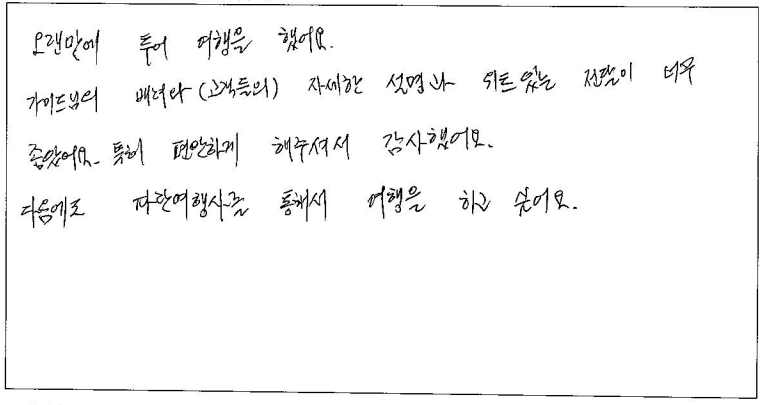 오랜만에 투어 여행을 했어요.
가이드님의 배려와 (고객들의) 자세한 설명과 위트있는 전달이 너무
좋았어요. 특히 편안하게 해주셔서 감사했어요.
다음에도 파란여행사를 통해서 여행을 하고 싶어요.